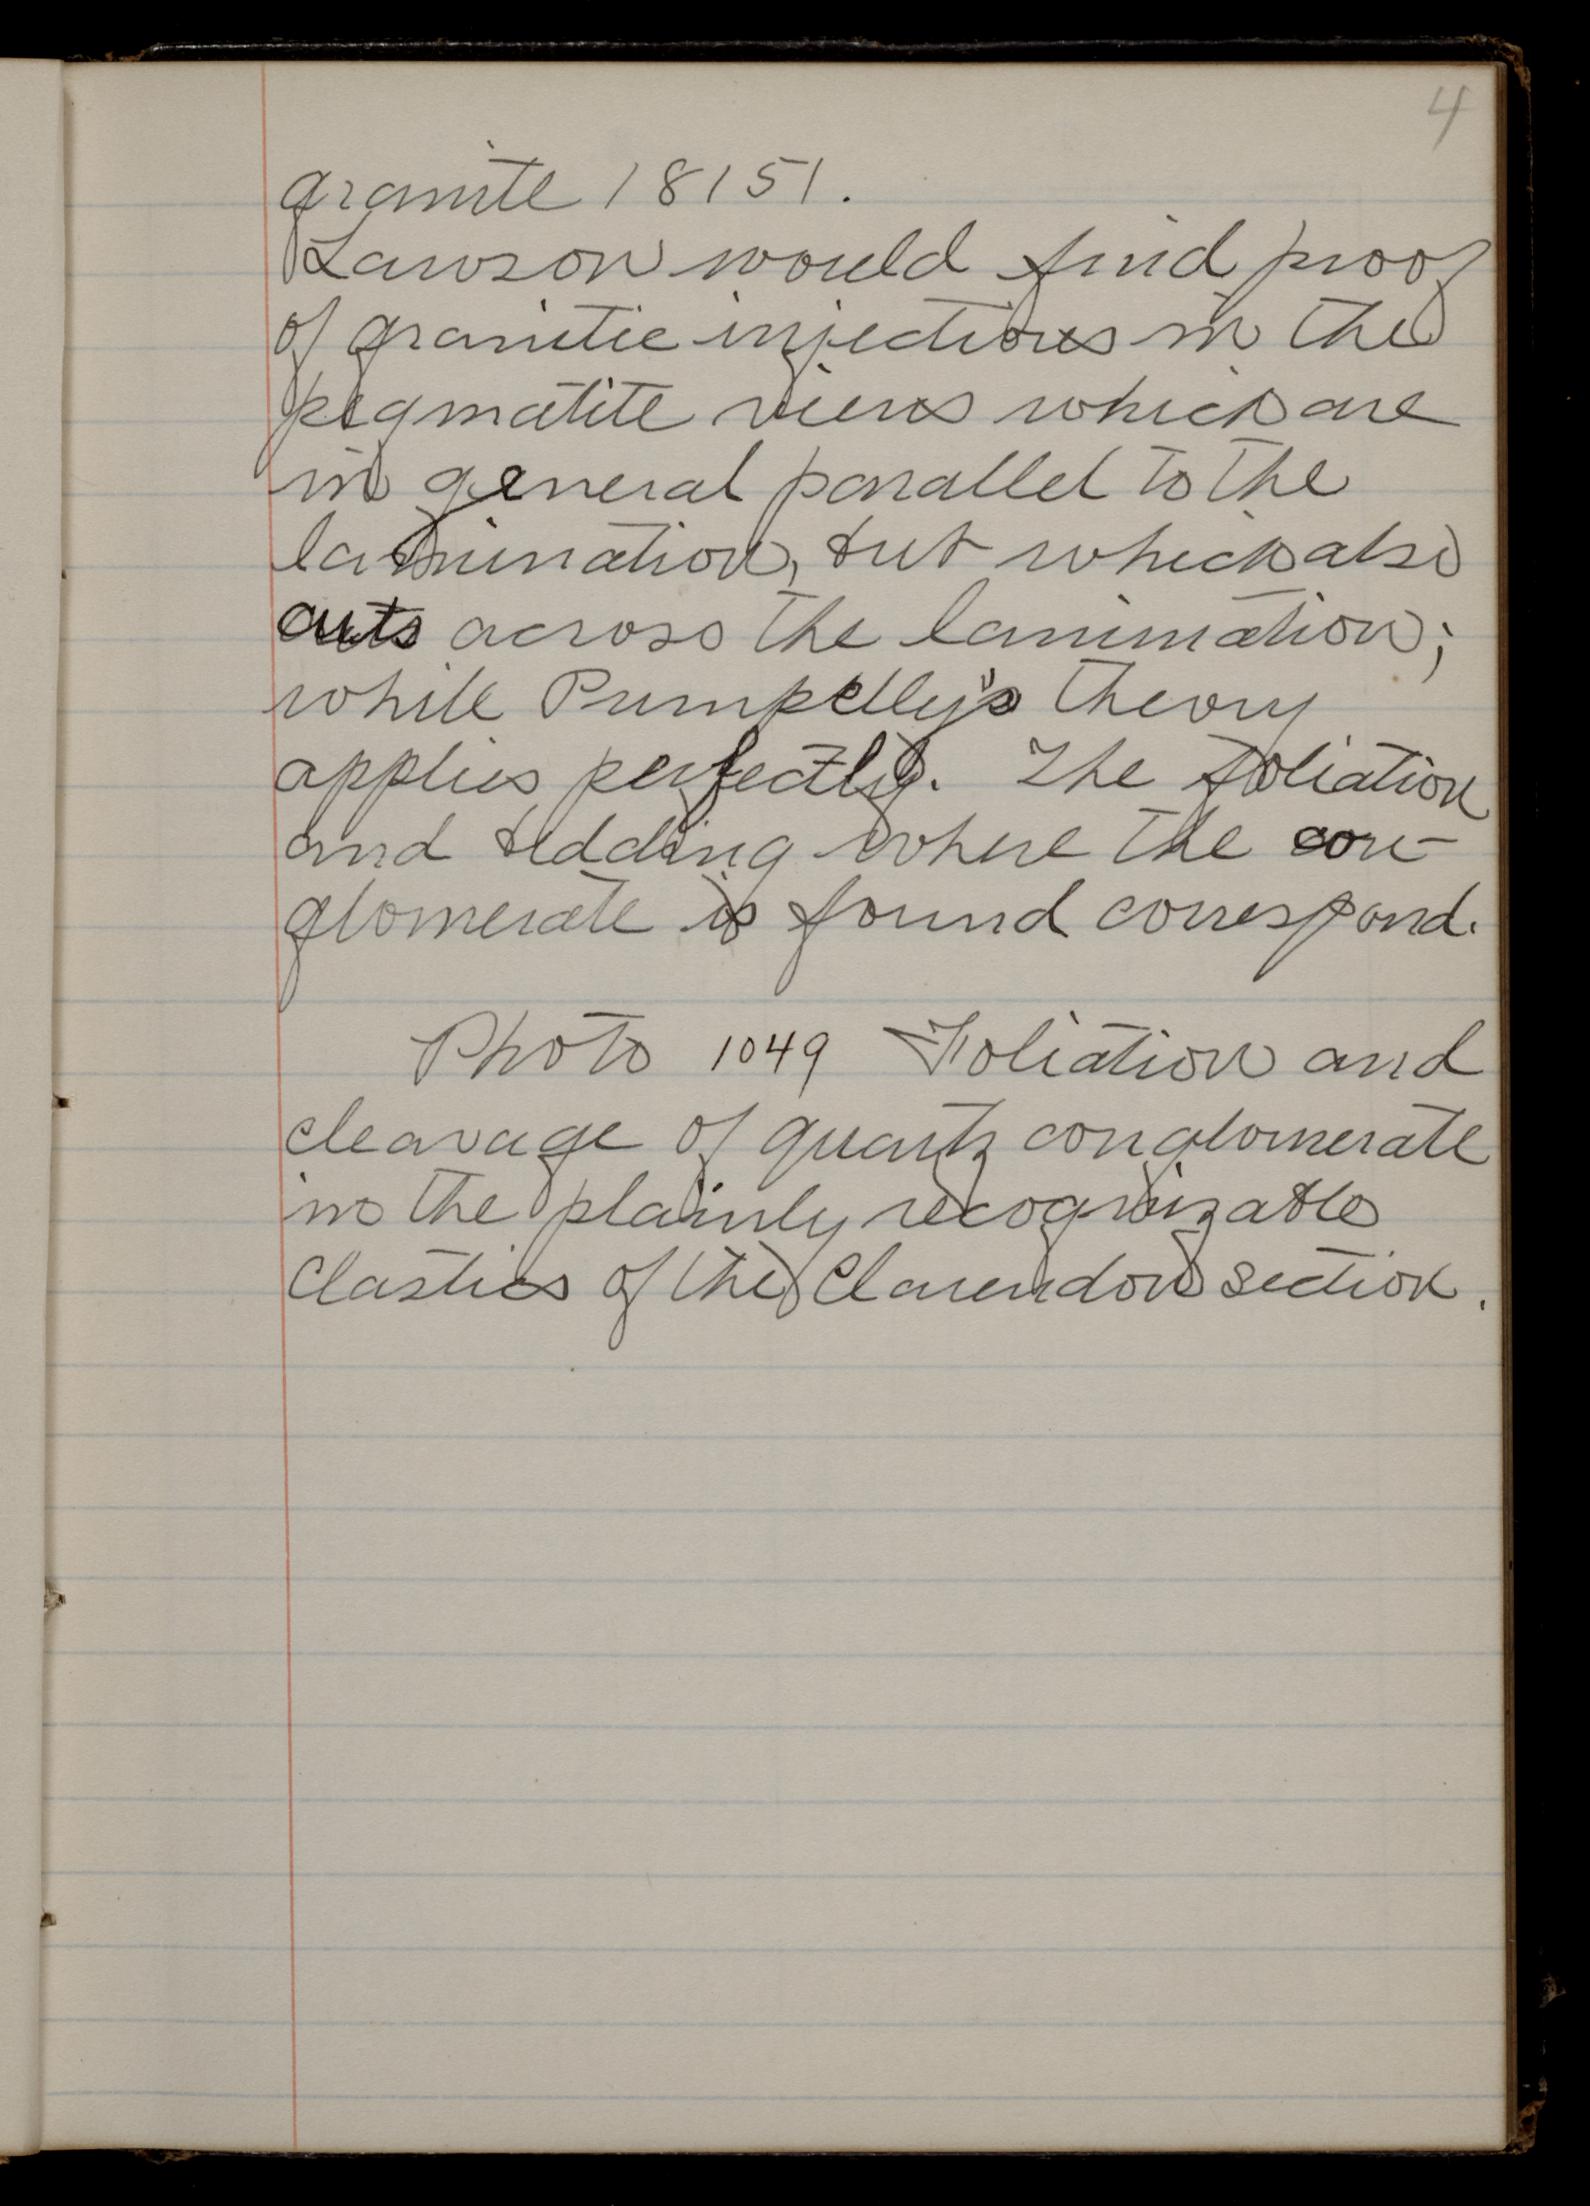 4
granite 18151.
Lawson would find proof
of granitic injections in the
pegmatite views which are
in general parallel to the
lamination, but which also
cuts across the lamination;
while Pumpelly's theory
applies perfectly. The foliation
and bedding where the con-
glomerate is found correspond.
Photo 1049 Foliation and
cleavage of quartz conglomerate
in the plainly recognizable
Clastics of the Clarendon section.